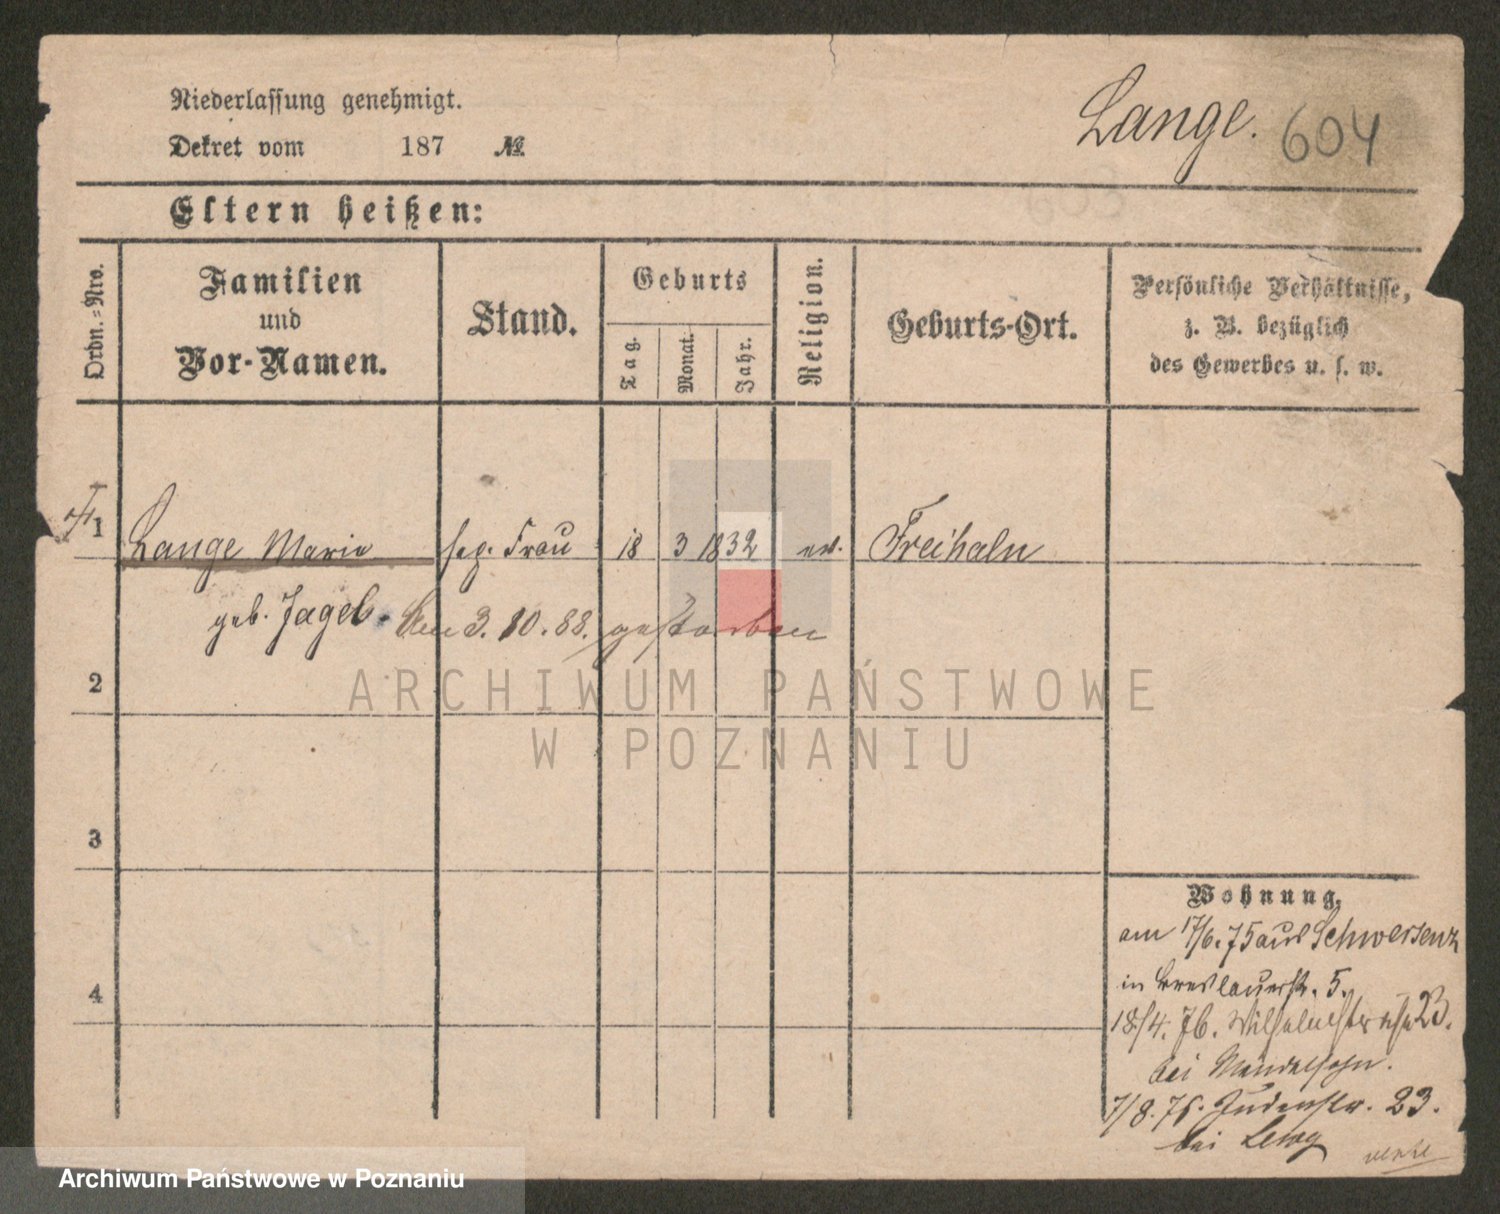 Niederlassung genehmigt.
Lange. 604
Dekret vom 187 №
Eltern heißen:
Ordn.-Nro.
Familien
und
Vor-Namen.
Stand.
Geburts
Tag.
Monat.
Jahr.
Religion.
Geburts-Ort.
Persönliche Verhältnisse,
z. B. bezüglich
des Gewerbes u. s. w.
1 Lange Maria sep. Frau 18 3 1832 ev. Freihaln
geb. Jagel. Den 3. 10. 88. gestorben
2
ARCHIWUM PAŃSTWOWE
W POZNANIU
3
4
Wohnung.
am 17/6. 75 aus Schwersenz
in Breslauerstr. 5.
18/4. 76. Wilhelmstrasse 23.
bei Mendelsohn.
7/8. 76. Judenstr. 23.
bei Lewy
Archiwum Państwowe w Poznaniu